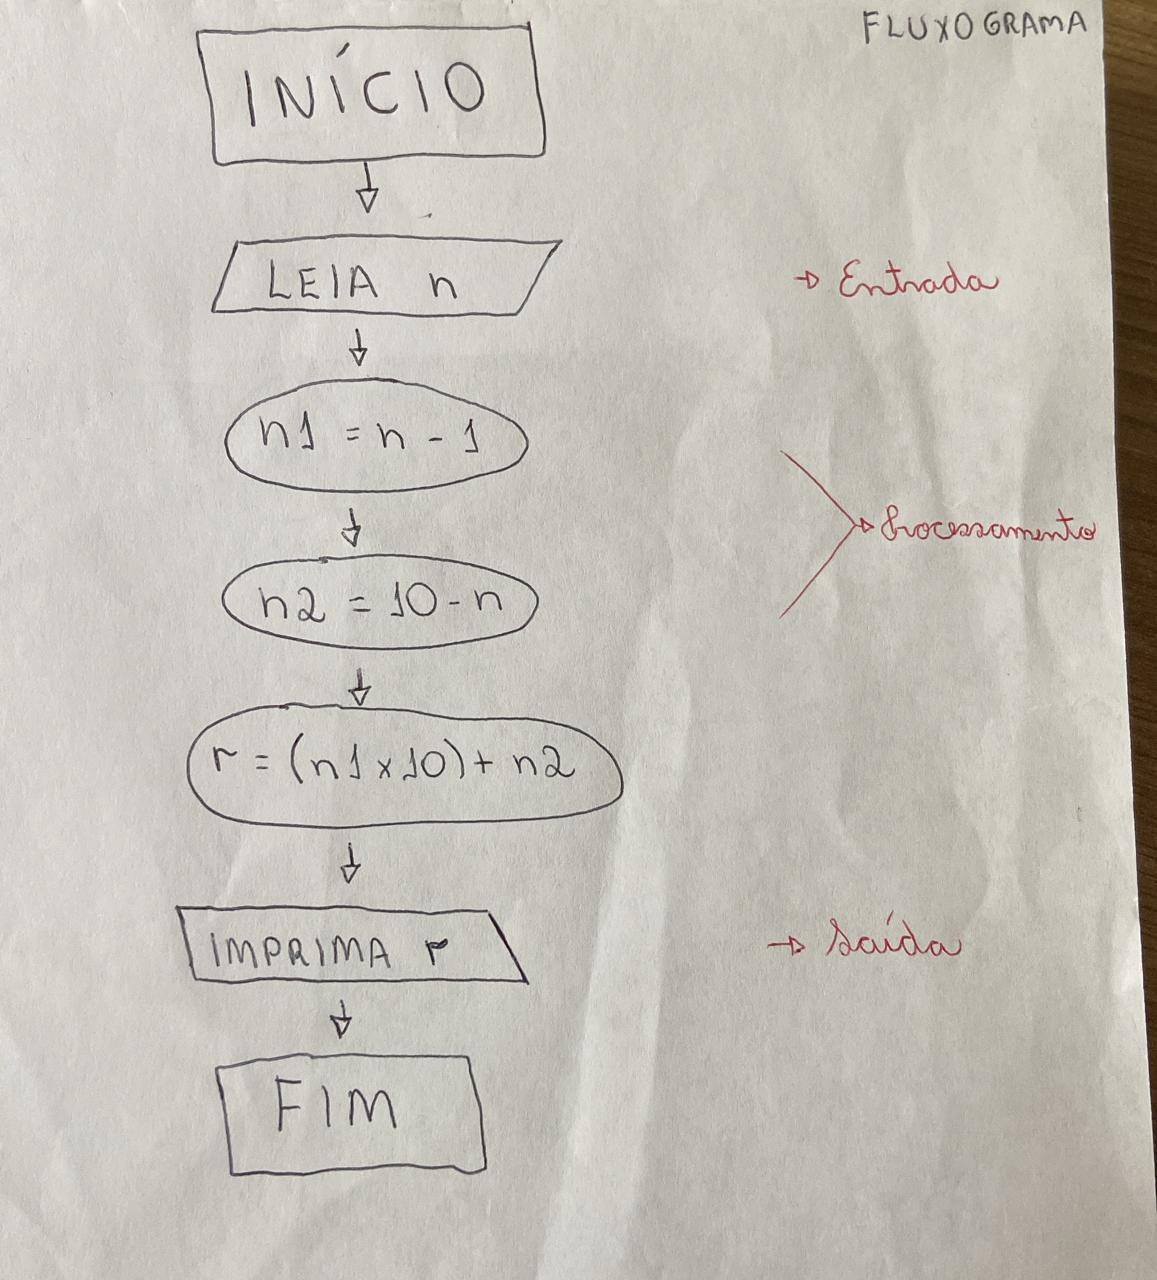 FLUXOGRAMA
INÍCIO
LEIA n
→ Entrada
n1 = n - 1
→ Processamento
n2 = 10 - n
r = (n1 x 10) + n2
IMPRIMA r
→ Saída
FIM